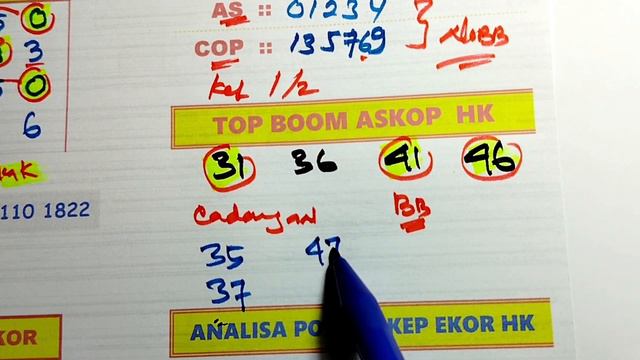 0
3
0
6
110 1822
KOR
AS :: 01234
COP :: 135769
BB
Kef 1/2
TOP BOOM ASKOP HK
31 36 41 46
Cadangan BB
35 47
37
ANALISA KEP EKOR HK